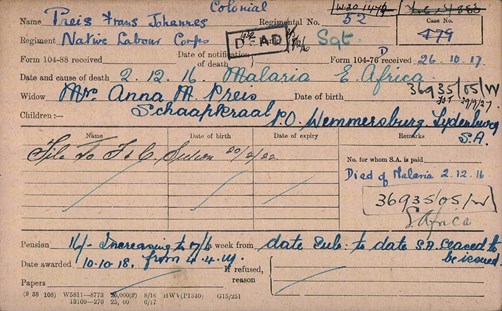 Colonial
Name Preis Frans Johannes Regimental No. 52 Case No.
Regiment Native Labour Corps DEAD Sgt 479
Form 104-88 received Date of notification of death Form 104-76 received 26.10.17
Date and cause of death 2.12.16 Malaria E. Africa
Widow Mrs Anna M. Preis Date of birth 36935/05/W
Children:— Schaapkraal P.O. Wemmersburg, Lydenburg S.A.
Name Date of birth Date of expiry Remarks
File To 20/2/22
No. for whom S.A. is paid
Died of Malaria 2.12.16
36935/05/W
S. Africa
Pension 11/- Increasing to week from date Sub: to date S.A. ceased to
Date awarded 10.10.18. from 4.4.19. be issued.
If refused, reason
Papers